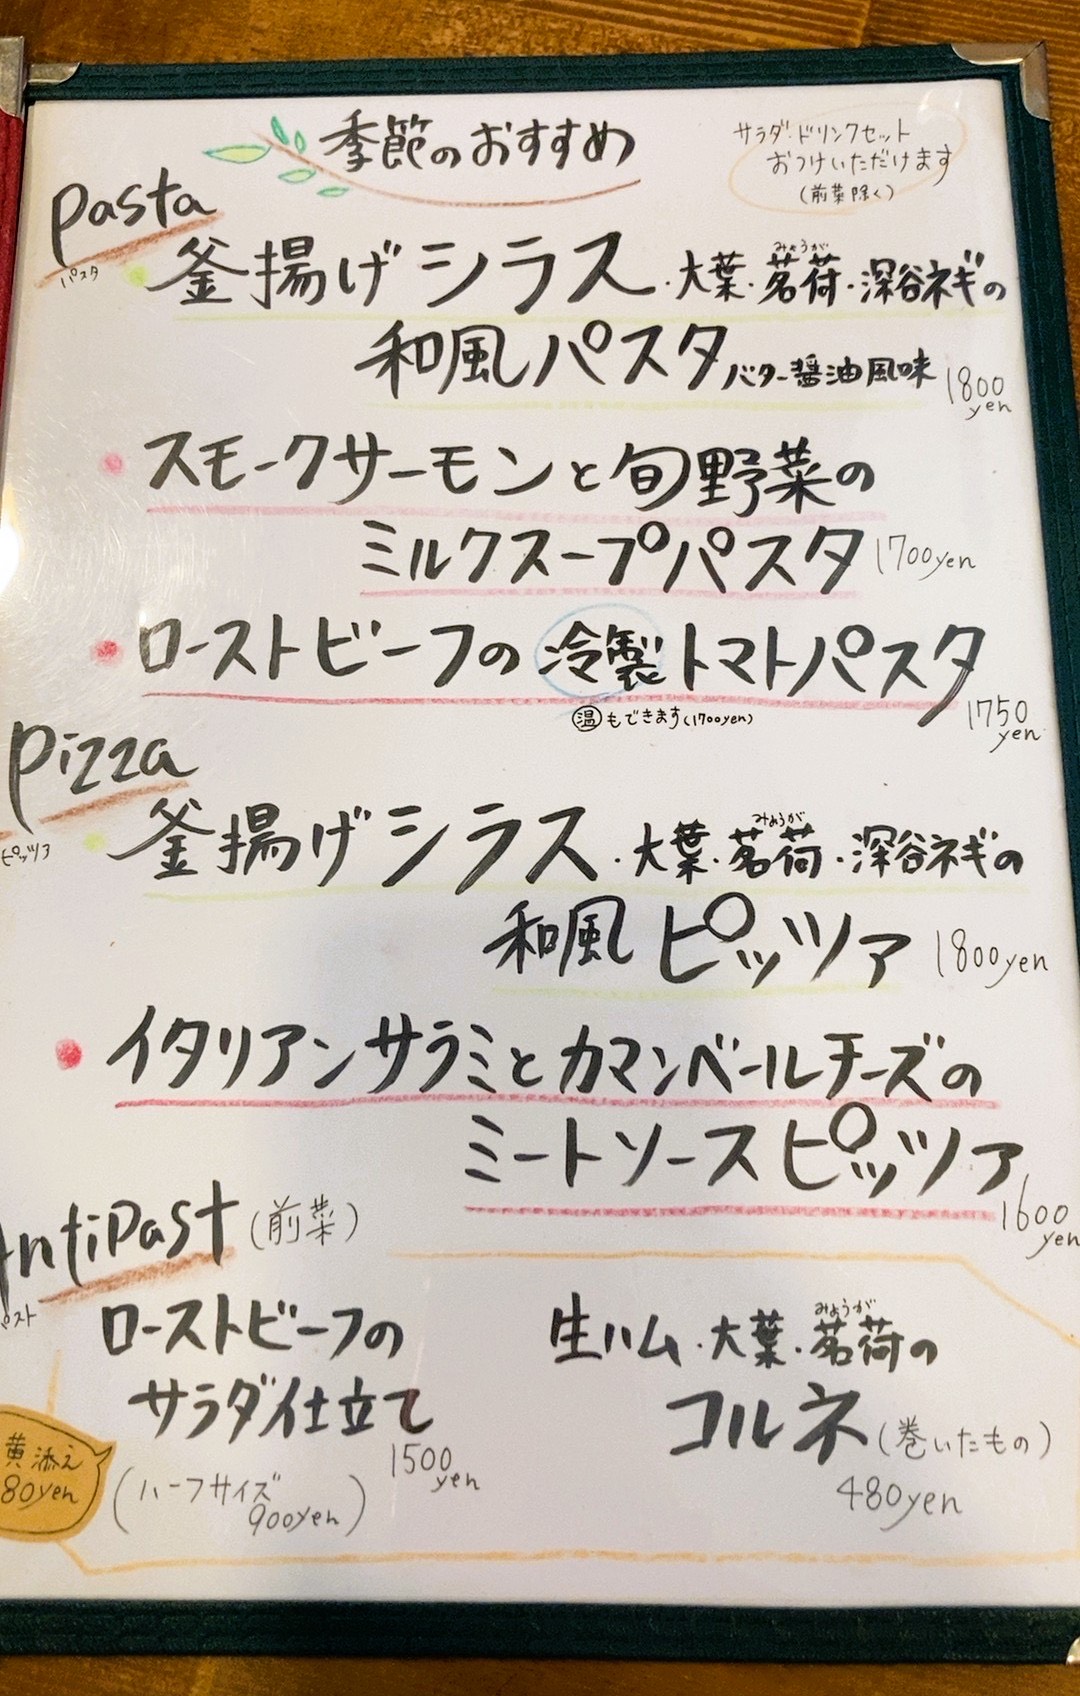 季節のおすすめ
サラダ・ドリンクセット
おつけいただけます
(前菜除く)
Pasta
パスタ
釜揚げシラス・大葉・茗荷・深谷ネギの
みょうが
和風パスタ バター醤油風味 1800yen
スモークサーモンと旬野菜の
ミルクスープパスタ 1700yen
ローストビーフの冷製トマトパスタ
温もできます(1700yen)
1750yen
Pizza
ピッツァ
釜揚げシラス・大葉・茗荷・深谷ネギの
みょうが
和風ピッツァ 1800yen
イタリアンサラミとカマンベールチーズの
ミートソースピッツァ
1600yen
AntiPast(前菜)
パスト
ローストビーフの
サラダ仕立て
1500yen
(ハーフサイズ
900yen)
黄添え
80yen
生ハム・大葉・茗荷の
みょうが
コルネ(巻いたもの)
480yen